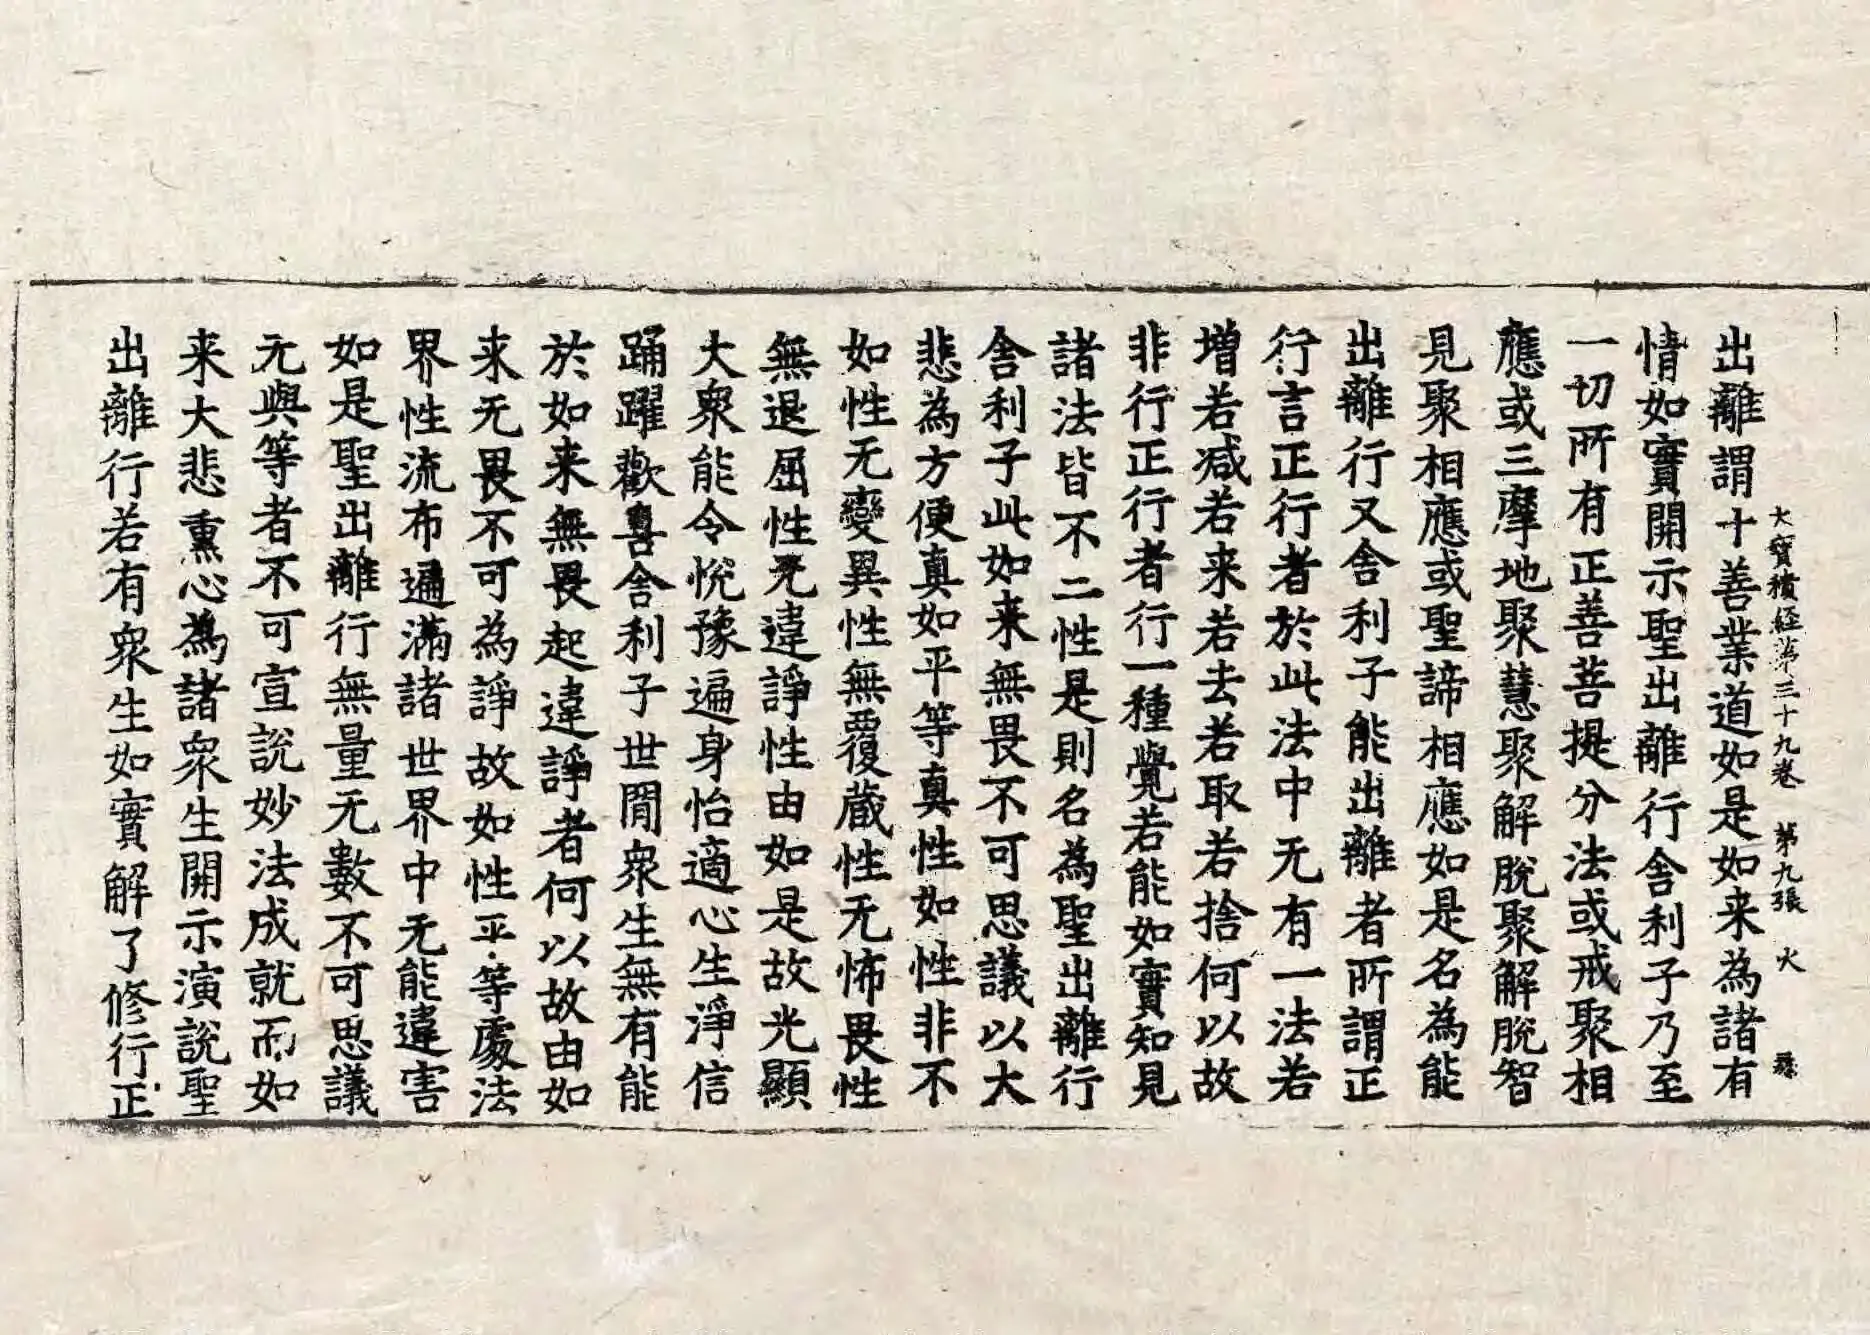 大寶積經第三十九卷 第九張 火
出離謂十善業道如是如来為諸有
情如實開示聖出離行舎利子乃至
一切所有正善菩提分法或戒聚相
應或三摩地聚慧聚解脫聚解脫智
見聚相應或聖諦相應如是名為能
出離行又舎利子能出離者所謂正
行言正行者於此法中无有一法若
增若减若来若去若取若捨何以故
非行正行者行一種覺若能如實知見
諸法皆不二性是則名為聖出離行
舎利子此如来無畏不可思議以大
悲為方便真如平等真性如性非不
如性无變異性無覆蔵性无怖畏性
無退屈性无違諍性由如是故光顯
大衆能令悅豫遍身怡適心生淨信
踊躍歡喜舎利子世間衆生無有能
於如来無畏起違諍者何以故由如
来无畏不可為諍故如性平等處法
界性流布遍滿諸世界中无能違害
如是聖出離行無量无數不可思議
无與等者不可宣說妙法成就而如
来大悲熏心為諸衆生開示演說聖
出離行若有衆生如實解了修行正